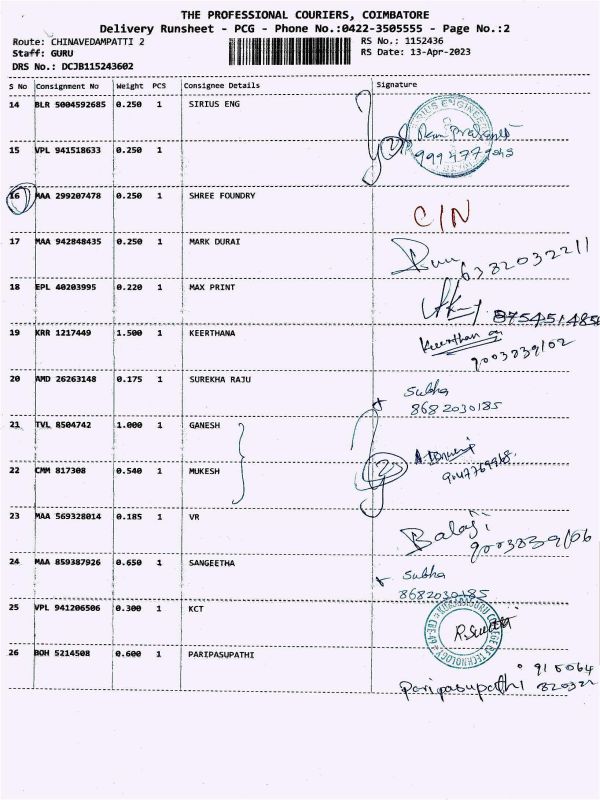 THE PROFESSIONAL COURIERS, COIMBATORE
Delivery Runsheet - PCG - Phone No.:0422-3505555 - Page No.:2
Route: CHINAVEDAMPATTI 2 RS No.: 1152436
Staff: GURU RS Date: 13-Apr-2023
DRS No.: DCJB115243602
S No Consignment No Weight PCS Consignee Details Signature
14 BLR 5004592685 0.250 1 SIRIUS ENG
15 VPL 941518633 0.250 1
16 MAA 299207478 0.250 1 SHREE FOUNDRY C/N
17 MAA 942848435 0.250 1 MARK DURAI 6382032211
18 EPL 40203995 0.220 1 MAX PRINT
19 KRR 1217449 1.500 1 KEERTHANA Keerthana
9003839102
20 AMD 26263148 0.175 1 SUREKHA RAJU Subha
8682030185
21 TVL 8504742 1.000 1 GANESH
22 CMM 817308 0.540 1 MUKESH
23 MAA 569328014 0.185 1 VR Balaji
9003839106
24 MAA 859387926 0.650 1 SANGEETHA Subha
8682030185
25 VPL 941206506 0.300 1 KCT
26 BOH 5214508 0.600 1 PARIPASUPATHI
Paripasupathi